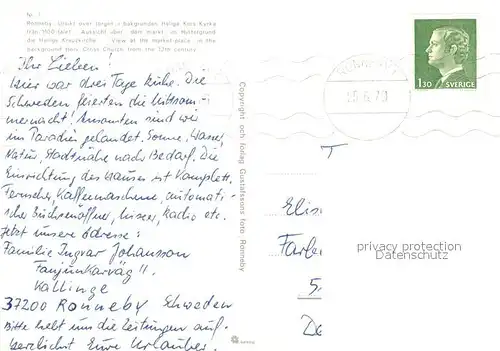 Nr. 1
Ronneby. Utsikt över torget, i bakgrunden Helige Kors Kyrka
från 1100-talet. Aussicht über den markt, im Huttergrund
die Heilige Kreuzkirche. View at the market-place, in the
background Holy Cross Church from the 12th century
Ihr Lieben!
Hier war drei Tage Ruhe. Die
Schweden feierten die Mittsom-
mernacht! Ansonsten sind wir
im Paradies gelandet. Sonne, Wasser,
Natur, Stadtnähe nach Bedarf. Die
Einrichtung des Hauses ist komplett.
Fernseher, Kaffeemaschine, automati-
scher Büchsenöffner, Mixer, Radio etc.
Jetzt unsere Adresse:
Familie Ingvar Johansson
Fanjunkarväg 11
Kallinge
37200 Ronneby Schweden
Bitte hebt uns die Zeitungen auf.
Herzlichst Eure Urlauber.
Copyright och förlag Gustafssons foto Ronneby
RONNEBY
25.6.79
1,30 SVERIGE
Elis
Farbe
5
De
privacy protection
Datenschutz